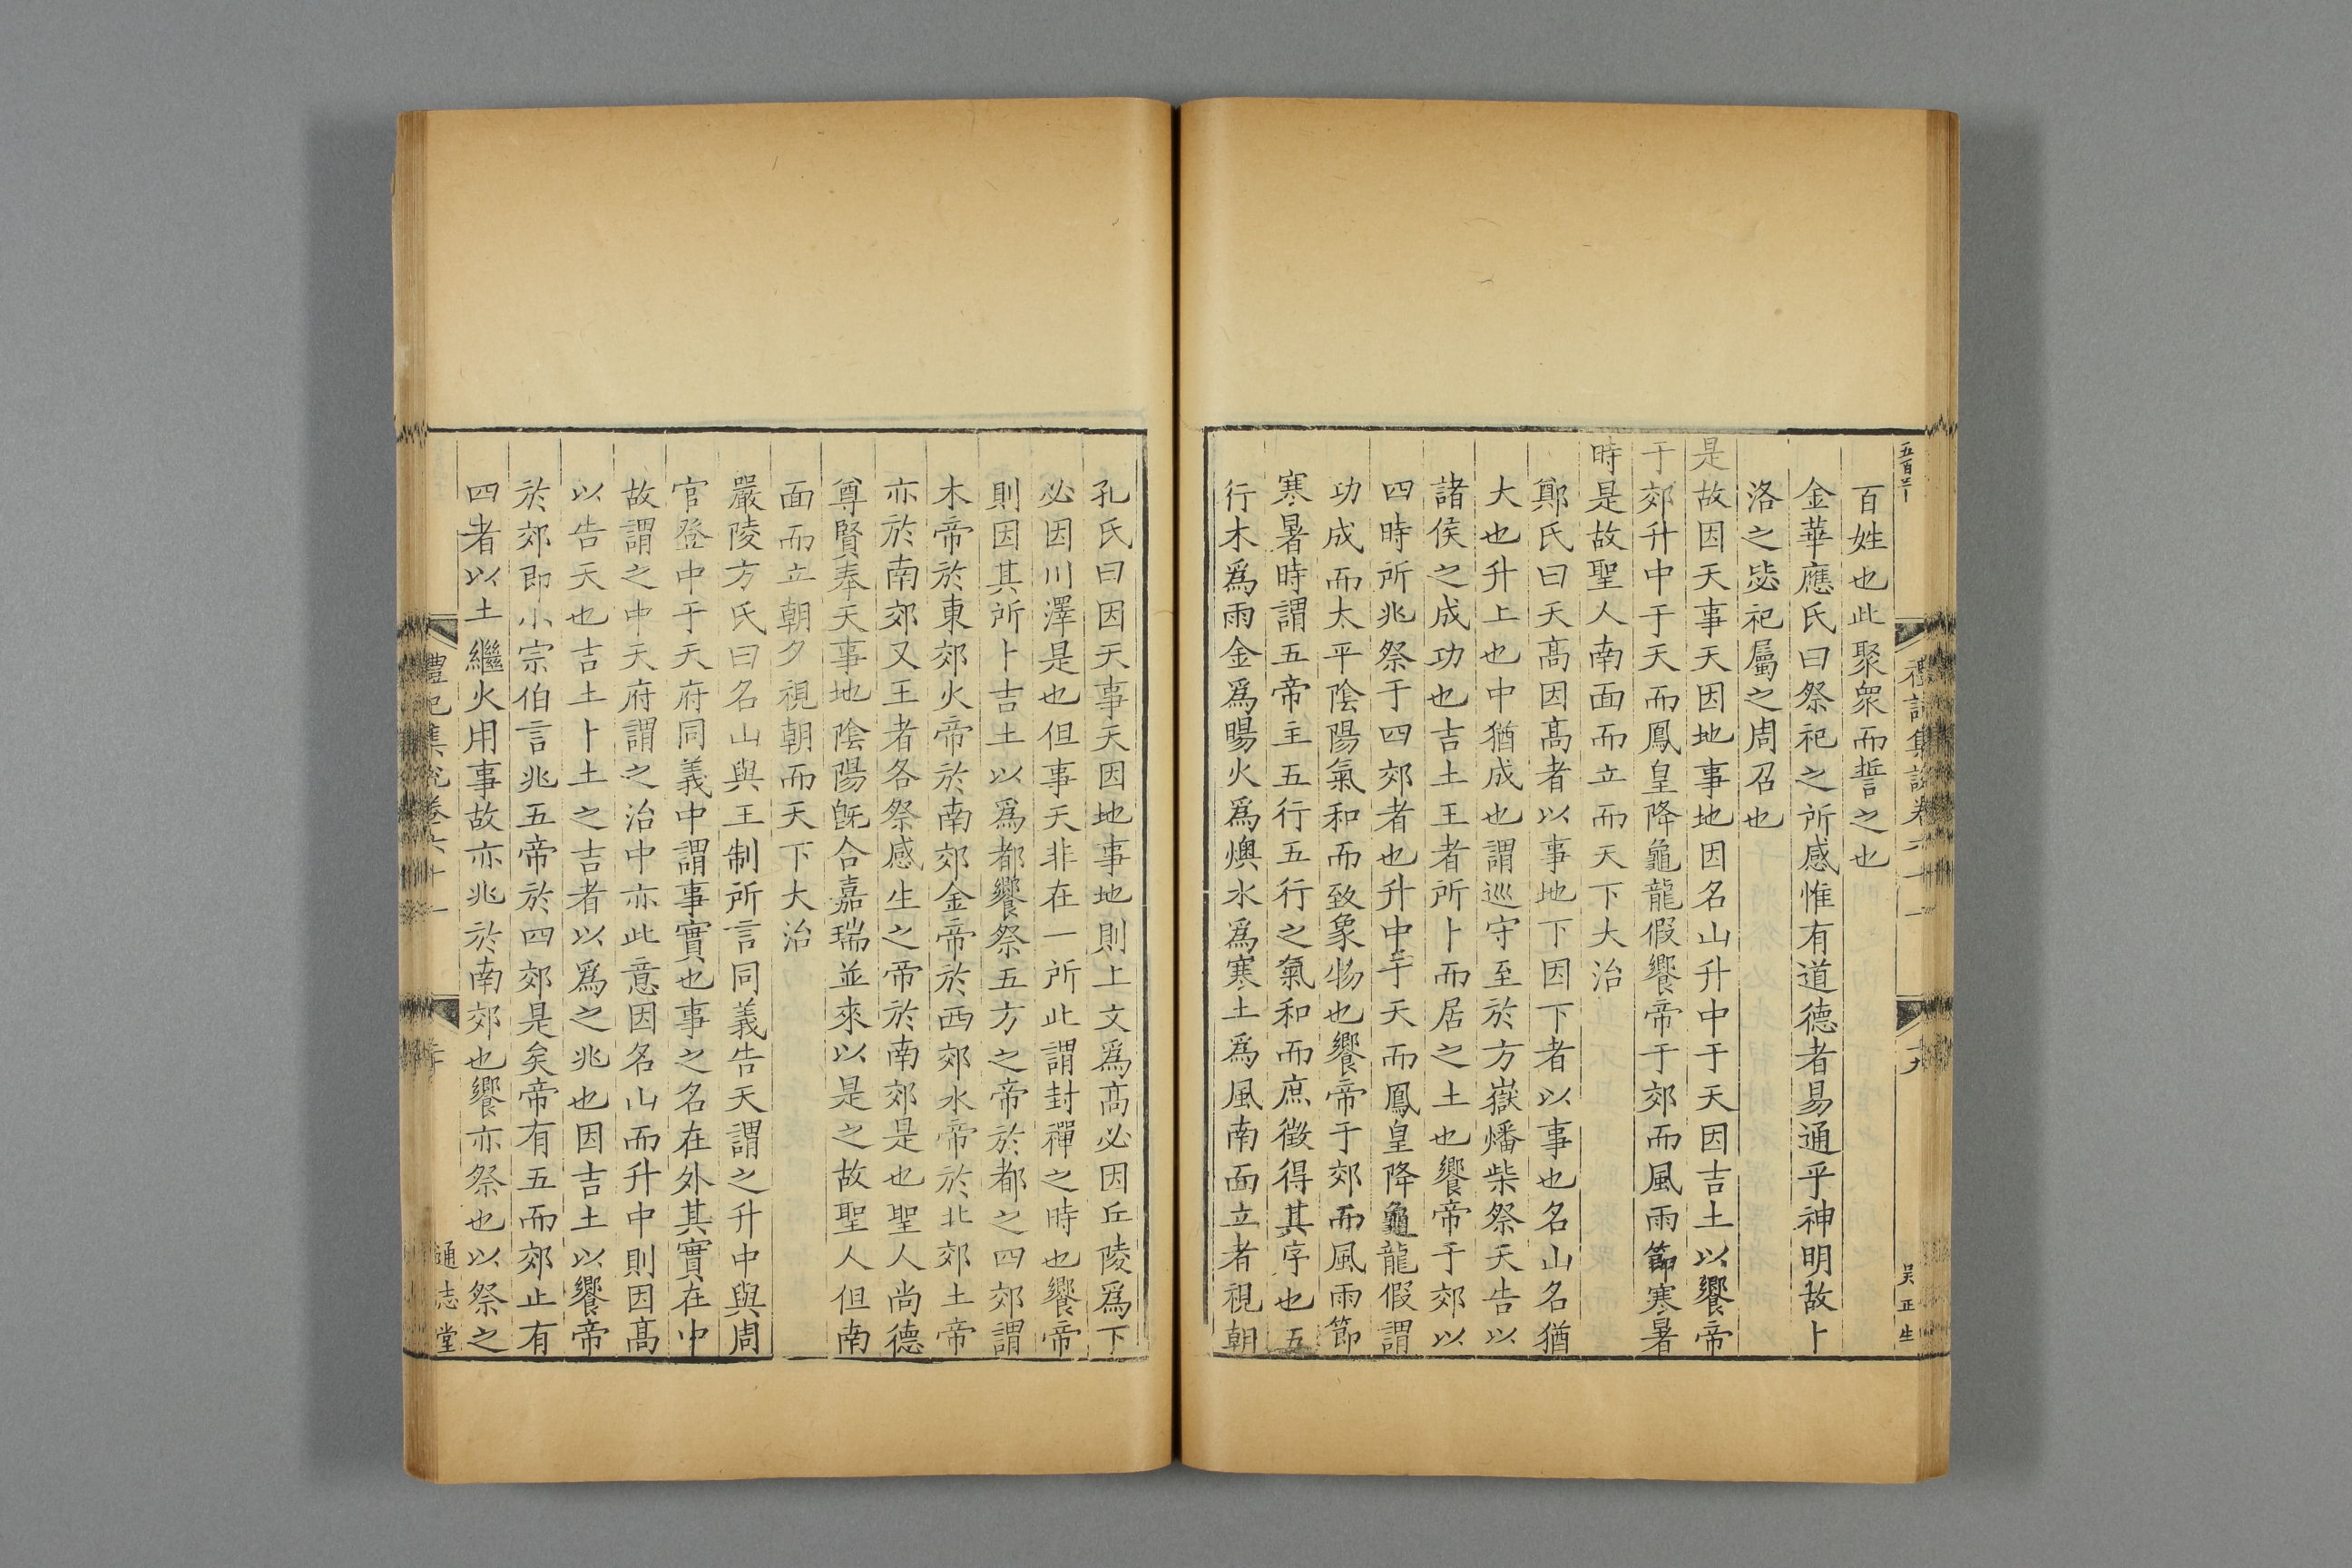 百姓也此聚衆而誓之也
金華應氏曰祭祀之所感惟有道德者易通乎神明故卜
洛之毖祀屬之周召也
是故因天事天因地事地因名山升中于天因吉土以饗帝
于郊升中于天而鳳皇降龜龍假饗帝于郊而風雨節寒暑
時是故聖人南面而立而天下大治
鄭氏曰天髙因髙者以事地下因下者以事也名山名猶
大也升上也中猶成也謂巡守至於方嶽燔柴祭天告以
諸侯之成功也吉土王者所卜而居之土也饗帝于郊以
四時所兆祭于四郊者也升中于天而鳳皇降龜龍假謂
功成而太平陰陽氣和而致象物也饗帝于郊而風雨節
寒暑時謂五帝主五行五行之氣和而庶徵得其序也五
行木爲雨金爲暘火爲燠水爲寒土爲風南面立者視朝
吴正生
孔氏曰因天事天因地事地則上文爲髙必因丘陵爲下
必因川澤是也但事天非在一所此謂封禪之時也饗帝
則因其所卜吉土以爲都饗祭五方之帝於都之四郊謂
木帝於東郊火帝於南郊金帝於西郊水帝於北郊土帝
亦於南郊又王者各祭感生之帝於南郊是也聖人尚德
尊賢奉天事地陰陽旣合嘉瑞並來以是之故聖人但南
面而立朝夕視朝而天下大治
嚴陵方氏曰名山與王制所言同義告天謂之升中與周
官登中于天府同義中謂事實也事之名在外其實在中
故謂之中天府謂之治中亦此意因名山而升中則因髙
以告天也吉土卜土之吉者以爲之兆也因吉土以饗帝
於郊即小宗伯言兆五帝於四郊是矣帝有五而郊止有
四者以土繼火用事故亦兆於南郊也饗亦祭也以祭之
禮記集說卷六十一
通志堂